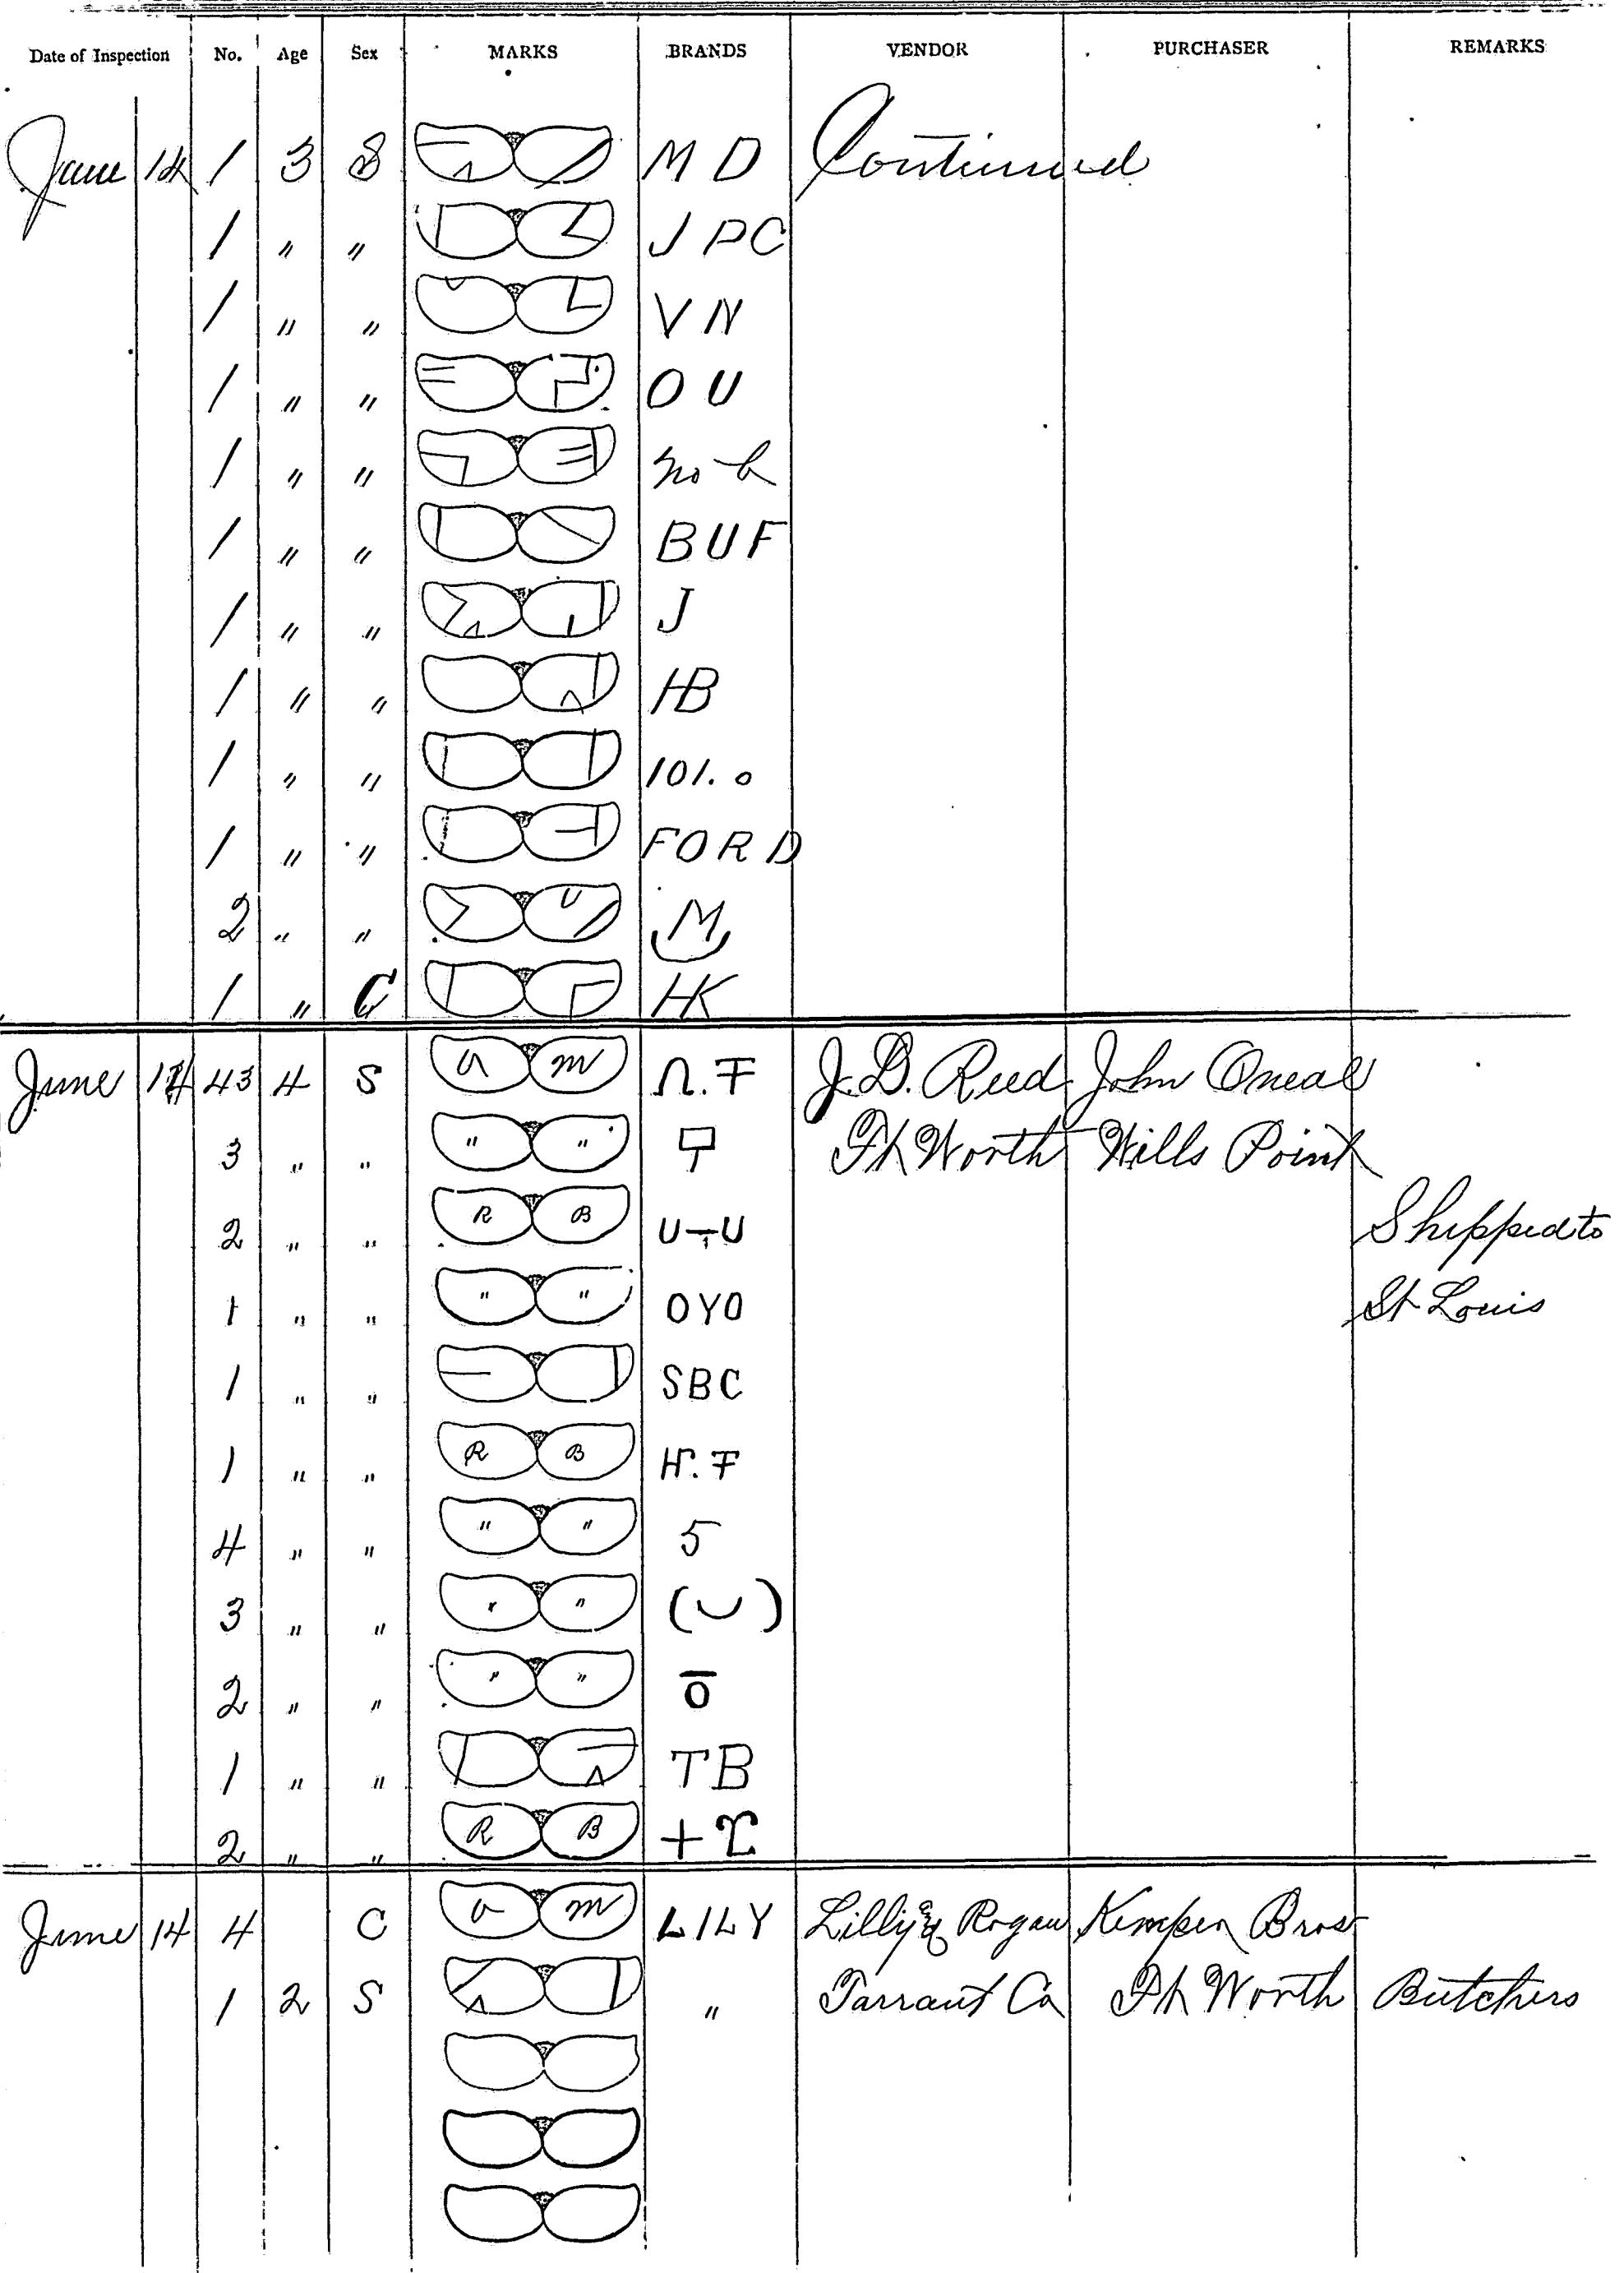 Date of Inspection No. Age Sex MARKS BRANDS VENDOR PURCHASER REMARKS
June 14 1 3 S M D Continued
1 " " J P C
1 " " V N
1 " " O U
1 " " no b
1 " " B U F
1 " " J
1 " " HB
1 " " 101. o
1 " " F O R D
2 " " M
1 " C HK
June 14 43 4 S a m J. D. Reed John Oneal
3 " " " " Ft Worth Wills Point
2 " " R B U T U Shipped to
1 " " " " O Y O St Louis
1 " " S B C
1 " " R B H. F
4 " " " " 5
3 " " " " (U)
2 " " " " O
1 " " T B
2 " " R B +
June 14 4 C a m L I L Y Lilly & Rogan Kemper Bros
1 2 S " Tarrant Co Ft Worth Butchers